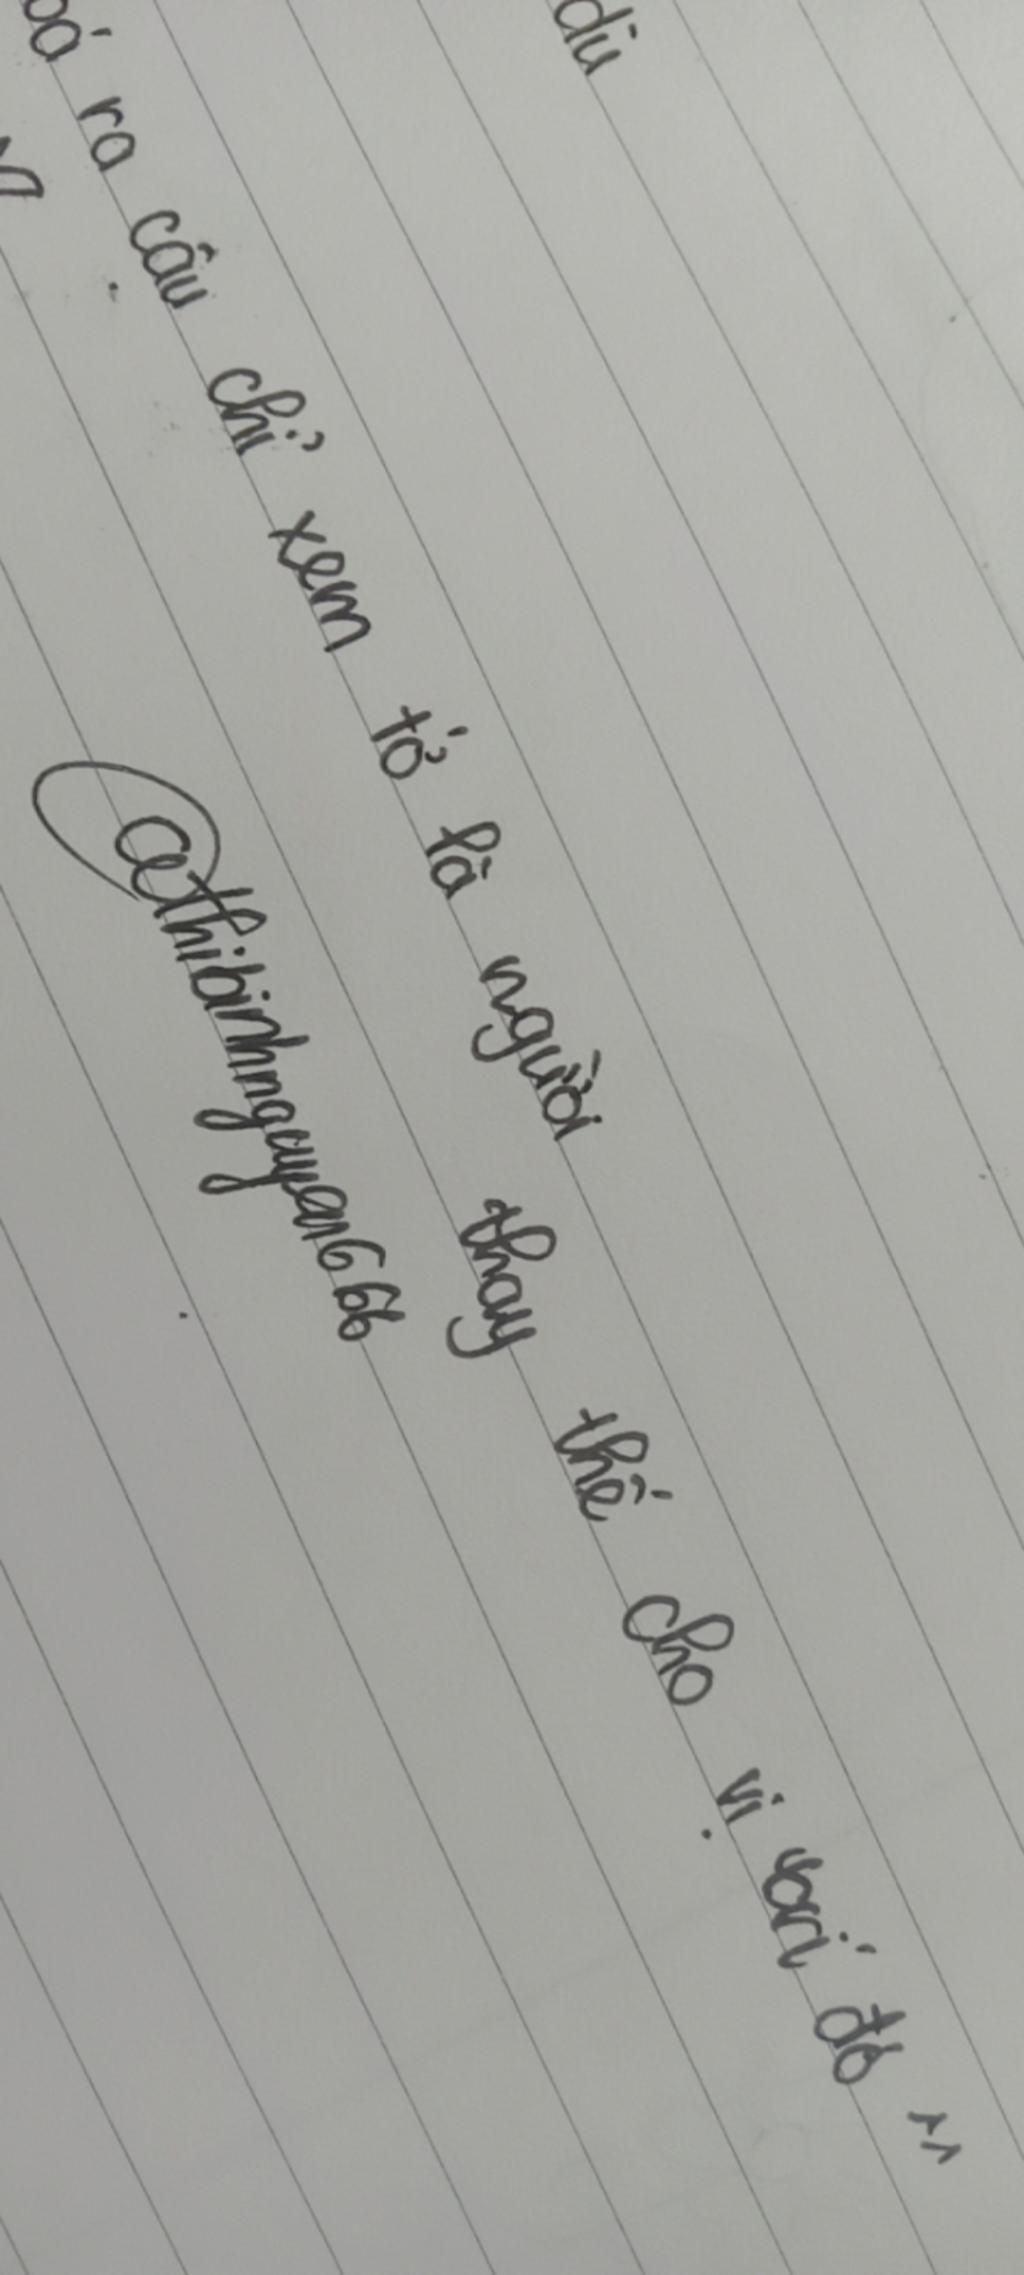 dù
ra câu chỉ xem tớ là người thay thế cho vị đó
@thibinhnguyen666